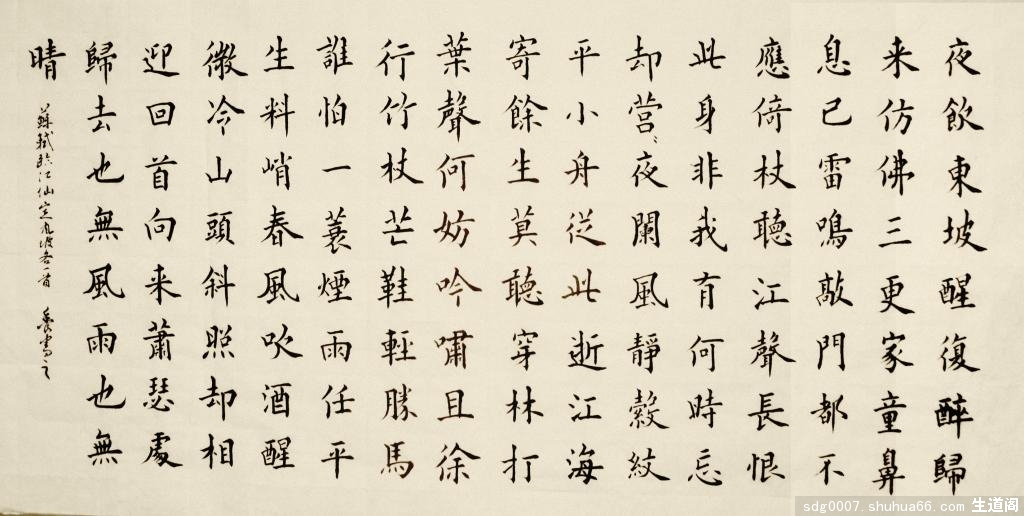 夜飲東坡醒復醉歸
来仿佛三更家童鼻
息已雷鳴敲門都不
應倚杖聽江聲長恨
此身非我有何時忘
却营〻夜闌風靜縠紋
平小舟從此逝江海
寄餘生莫聽穿林打
葉聲何妨吟嘯且徐
行竹杖芒鞋輕勝馬
誰怕一蓑煙雨任平
生料峭春風吹酒醒
微冷山頭斜照却相
迎回首向来蕭瑟處
歸去也無風雨也無
晴
蘇軾臨江仙定風波各一首 書之
sdg0007.shuhua66.com 生道阁